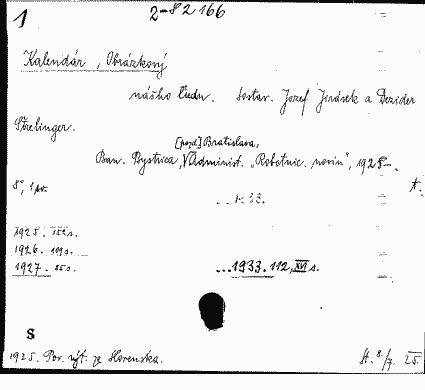 1
2-82166
Kalendár, Obrázkový
nášho ľudu. Sostav. Jozef Jirásek a Dezider
Štrelinger.
[pozd.] Bratislava,
Ban. Bystrica, Administ. „Robotníc. novín", 1925-.
8°, 1 sv.
1925. 152 s.
1926. 119 s.
1927. 85 s.
...1933. 112, XVI s.
S
1925. Por. výt. ze Slovenska.